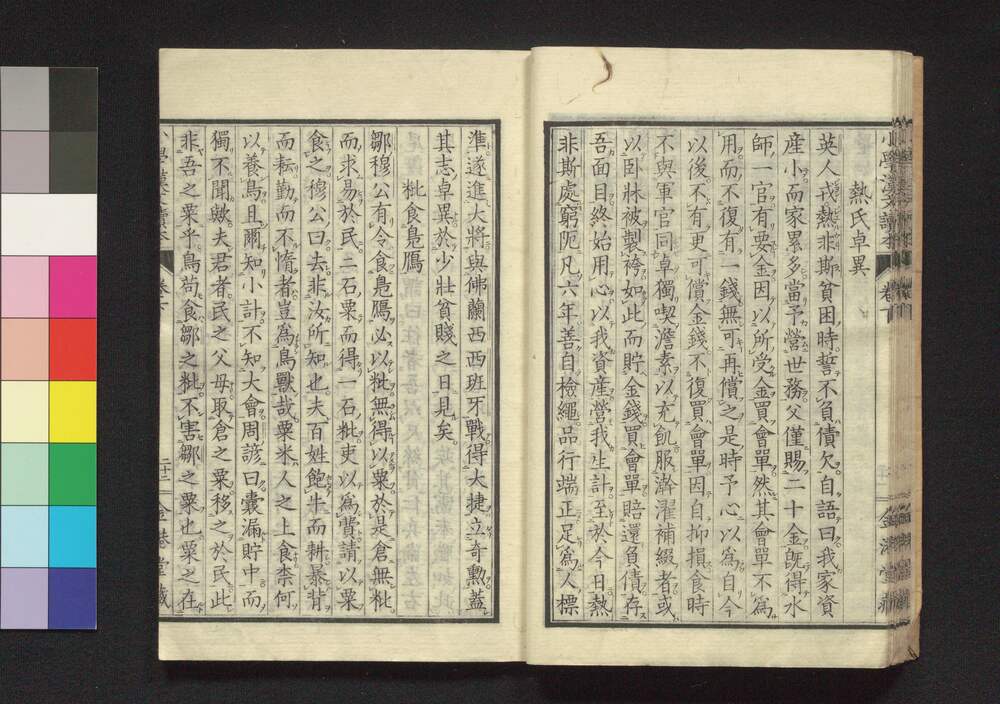 熱氏卓異
英人戎熱非斯貧困時誓不負債欠自語曰我家資
產小而家累多當予營世務父僅賜二十金既得水
師一官有要金因以所受金買會單然其會單不爲
用而不復有一錢無可再償之是時予心以爲自今
以後不有更可償金錢不復買會單因自抑損食時
不與軍官同卓獨喫澹素以充飢服澣濯補綴者或
以臥牀被製袴如此而貯金錢買會單賠還負債存
吾面目終始用心以我資産營我生計至於今日熱
非斯處窮阨凡六年善自檢繩品行端正足爲人標
準遂進大將與佛蘭西西班牙戰得大捷立奇勲蓋
其志卓異於少壯貧賤之日見矣
粃食鳬鴈
鄒穆公有令食鳬鴈必以粃無得以粟於是倉無粃
而求易於民二石粟而得一石粃吏以爲費請以粟
食之穆公曰去非汝所知也夫百姓飽牛而耕暴背
而耘勤而不惰者豈爲鳥獸哉粟米人之上食柰何
以養鳥且爾知小計不知大會周諺曰囊漏貯中而
獨不聞歟夫君者民之父母取倉之粟移之於民此
非吾之粟乎鳥苟食鄒之粃不害鄒之粟也粟之在
小學漢文讀本
二十二
金港堂藏